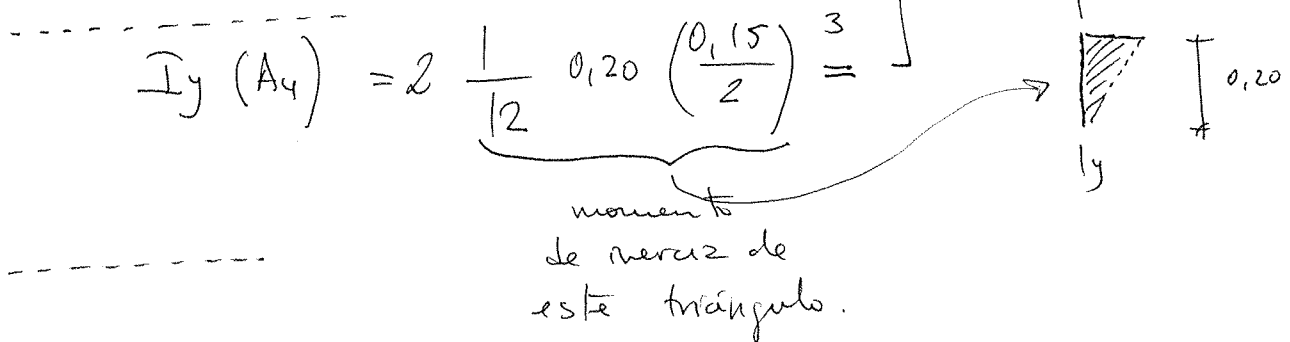 Iy (A4) = 2 1/12 0,20 (0,15/2)^3 =
0,20
ly
momento
de inercia de
este triángulo.